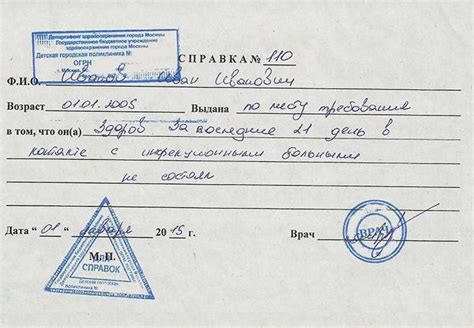 Департамент здравоохранения города Москвы
Государственное бюджетное учреждение
здравоохранения города Москвы
Детская городская поликлиника №
ОГРН
СПРАВКА № 110
Ф.И.О. Иванов Иван Иванович
Возраст 01.01.2005 Выдана по месту требования
в том, что он(а) Здоров За последние 21 день в
контакте с инфекционными больными
не состоял
Дата "01" января 2015г. Врач
ВРАЧ
М.П.
ДЛЯ
СПРАВОК
Детская городская
поликлиника №